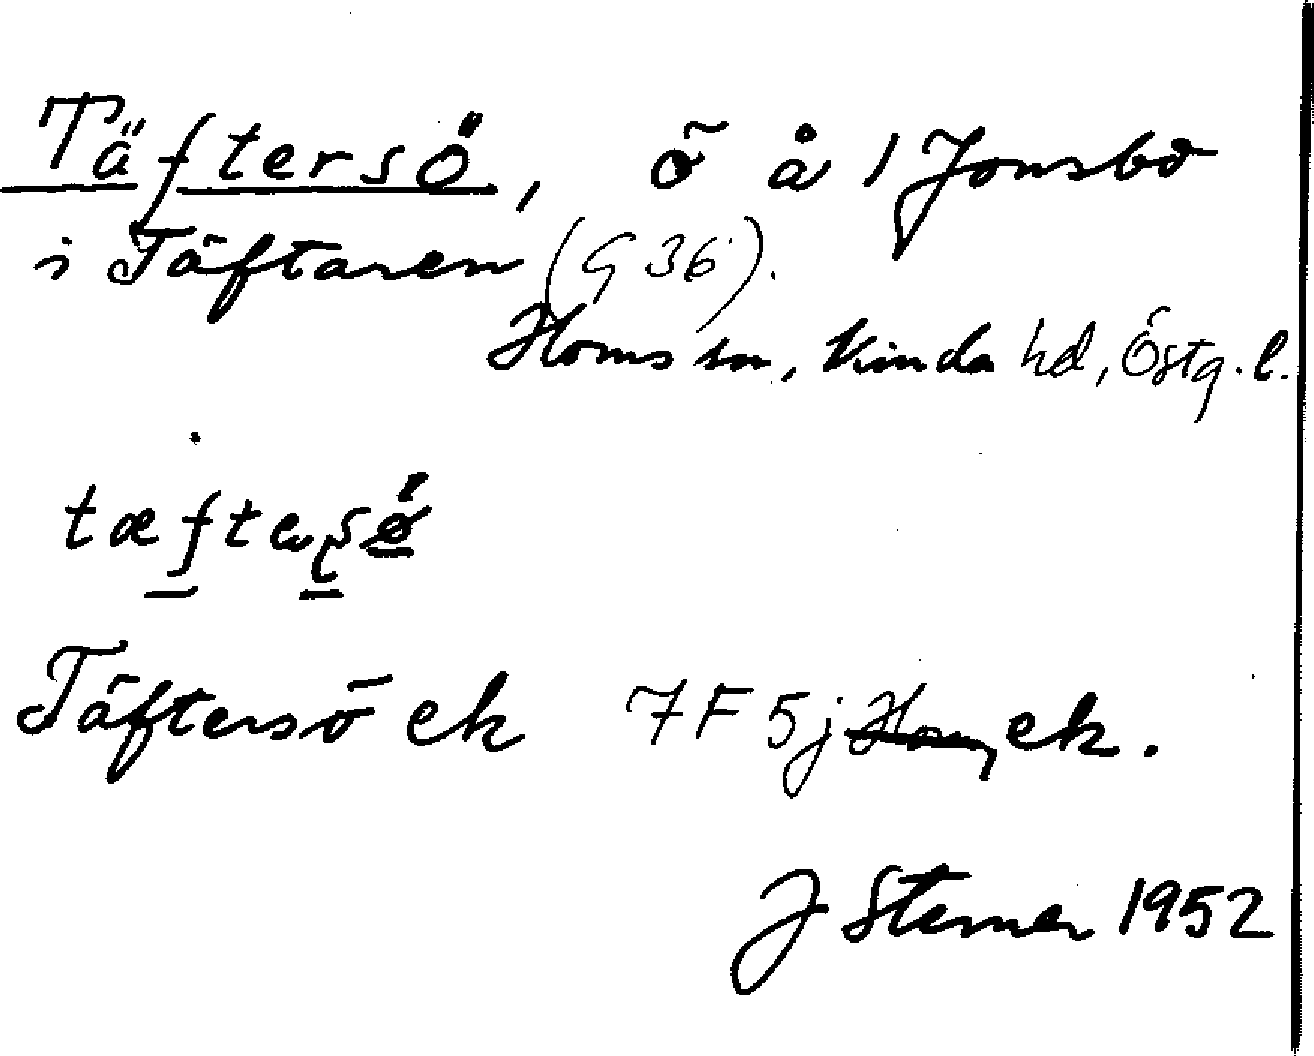 Täftersö, ö å 1 Jonsbo
i Täftaren (G 36).
Horns sn, Kinda hd, Östg. l.
Täftersö ek 7F 5j ek.
J Sterner 1952